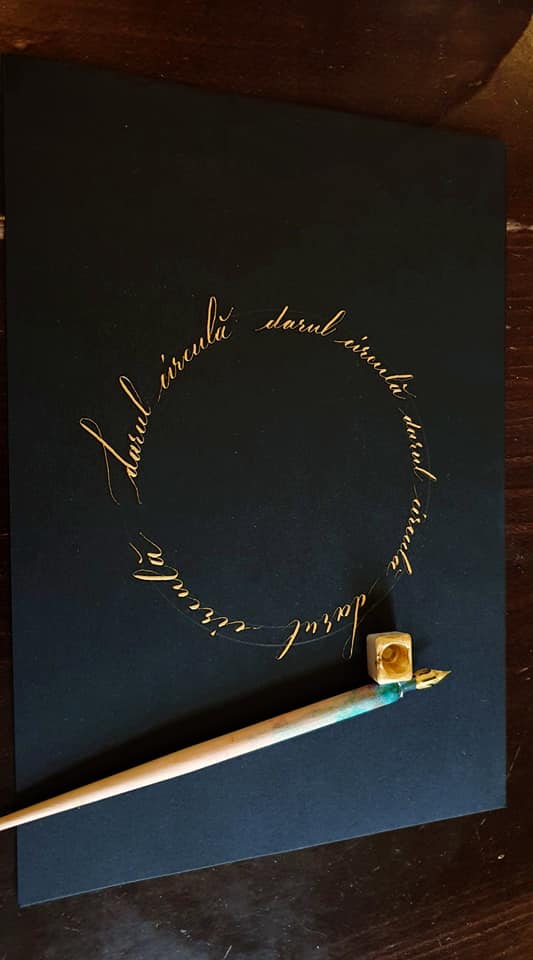 darul circulă darul circulă darul circulă darul circulă